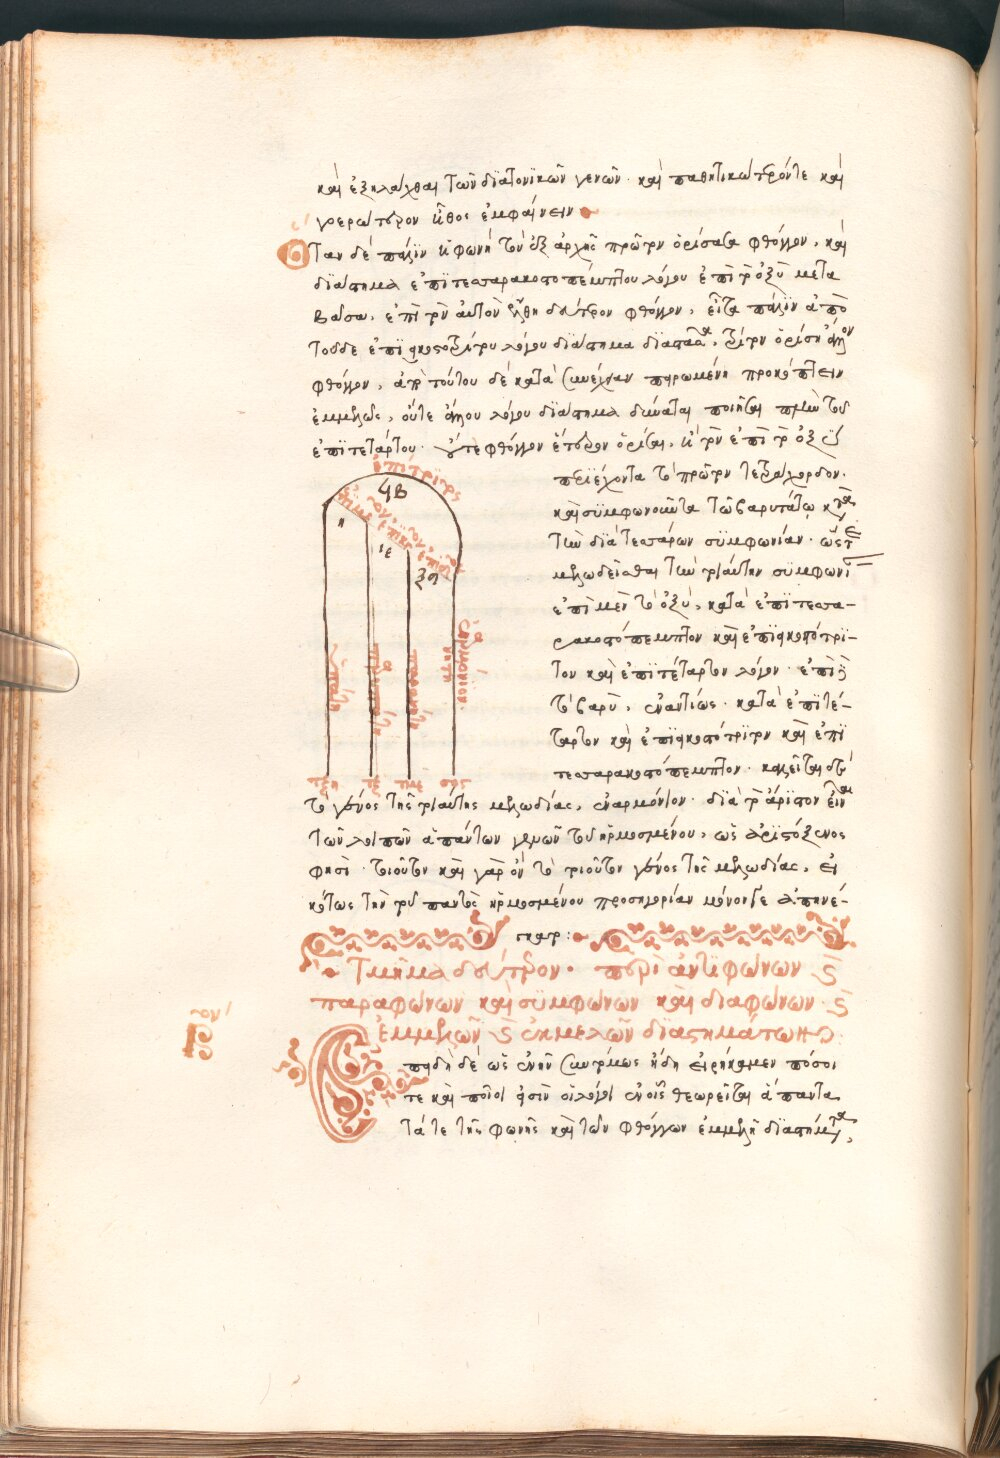 καὶ ἐξηλλάχθαι τῶν διατονικῶν γενῶν· καὶ παθητικώτερόν τε καὶ
γοερώτερον ἦθος ἐμφαίνειν
Ὅταν δὲ πάλιν ἡ φωνὴ τὸν ἐξ ἀρχῆς πρῶτον ὁρίσασα φθόγγον, καὶ
διάστημα ἐπιτεσσαρακοστοπέμπτου λόγου ἐπὶ τὸ ὀξὺ μετα
βᾶσα, ἐπὶ τὸν αὐτὸν ἔλθῃ δεύτερον φθόγγον, εἶτα πάλιν ἀπὸ
τοῦδε ἐπιεικοστοτρίτου λόγου διάστημα διαστᾶσα, τρίτον ὁρίσῃ ἄλλον
φθόγγον, ἀπὸ τούτου δὲ κατὰ συνέχειαν πειρωμένη προκόπτειν
ἐμμελῶς, οὔτε ἄλλου λόγου διάστημα δύναται ποιῆσαι πλὴν τοῦ
ἐπιτετάρτου· οὔτε φθόγγον ἕτερον ὁρίσαι, ἢ τὸν ἐπὶ τὸ ὀξὺ
περιέχοντα τὸ πρῶτον τετράχορδον.
καὶ συμφωνοῦντα τῷ βαρυτάτῳ κατὰ
τὴν διὰ τεσσάρων συμφωνίαν· ὥστε
μελῳδεῖσθαι τὴν τοιαύτην συμφωνίαν
ἐπὶ μὲν τὸ ὀξύ, κατὰ ἐπιτεσσα-
ρακοστόπεμπτον καὶ ἐπιεικοστότρι-
τον καὶ ἐπιτέταρτον λόγον· ἐπὶ δὲ
τὸ βαρὺ, ἐναντίως· κατὰ ἐπιτέ-
ταρτον καὶ ἐπιεικοστότριτον καὶ ἐπι
τεσσαρακοστόπεμπτον· καλεῖται δὲ
τὸ γένος τῆς τοιαύτης μελῳδίας, ἐναρμόνιον· διὰ τὸ ἄριστον εἶναι
τῶν λοιπῶν ἁπάντων γενῶν τοῦ ἡρμοσμένου, ὡς Ἀριστόξενος
φησὶ· τοιοῦτον καὶ γὰρ ὂν τὸ τοιοῦτον γένος τῆς μελῳδίας, εἰ
κότως τὴν τοῦ παντὸς ἡρμοσμένου προσηγορίαν μόνον δὲ ἀπηνέ-
γκατο:
Τμῆμα δεύτερον· περὶ ἀντιφώνων καὶ
παραφώνων καὶ συμφώνων καὶ διαφώνων καὶ
ἐμμελῶν καὶ ἐκμελῶν διαστημάτων
Ἐπειδὴ δὲ ὡς ἐνῆν συντόμως ἤδη εἰρήκαμεν πόσοι
τε καὶ ποῖοι εἰσὶν οἱ λόγοι ἐν οἷς θεωρεῖται ἅπαντα
τά τε τῆς φωνῆς καὶ τῶν φθόγγων ἐμμελῆ διαστήματα,
ἐπίτριτος
ϟβ
η
ιε
ξθ
ὑπάτη
παρυπάτη
παρανήτη
νήτη
ἐναρμόνιον
τξη
τξ
σος